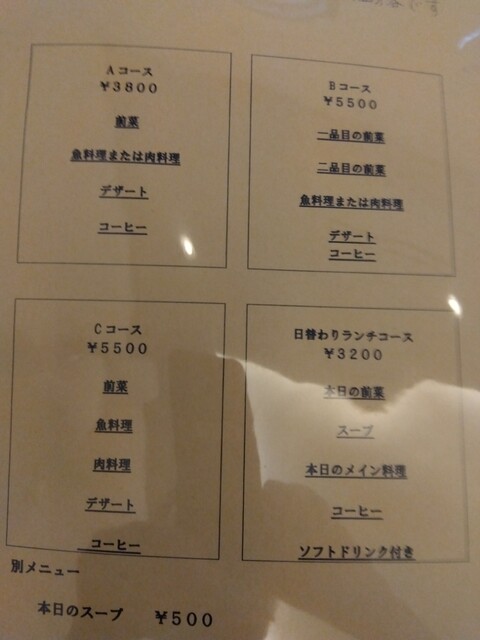 Aコース
¥3800
前菜
魚料理または肉料理
デザート
コーヒー
Bコース
¥5500
一品目の前菜
二品目の前菜
魚料理または肉料理
デザート
コーヒー
Cコース
¥5500
前菜
魚料理
肉料理
デザート
コーヒー
日替わりランチコース
¥3200
本日の前菜
スープ
本日のメイン料理
コーヒー
ソフトドリンク付き
別メニュー
本日のスープ ¥500